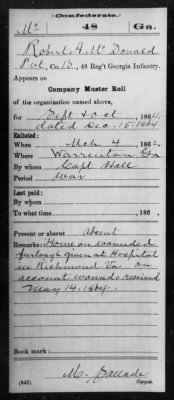 (Confederate.)
Mc 48 Ga.
Robert A. McDonald
Pvt, Co. B, 48 Reg't Georgia Infantry.
Appears on
Company Muster Roll
of the organization named above,
for Sept & Oct, 1864.
dated Dec. 15, 1864
Enlisted:
When Mch 4, 1862.
Where Warrenton Ga
By whom Capt Hall
Period War
Last paid:
By whom
To what time , 186 .
Present or absent Absent
Remarks: Home on wounded
furlough given at Hospital
in Richmond Va on
account wounds received
May 14, 1864.
Book mark:
(642) Copyist.